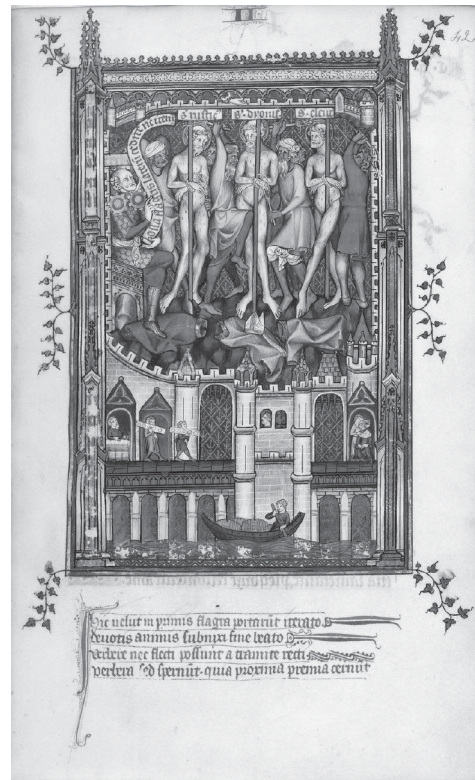 42
s rustic s. dyonis s. eleut
Hic uelut in primis flagra portarūt iterato.
deuotis animis subnixi fine beato
verbere nec flecti possunt a tramite recti
verbera sed spernūt. quia proxima premia cernūt